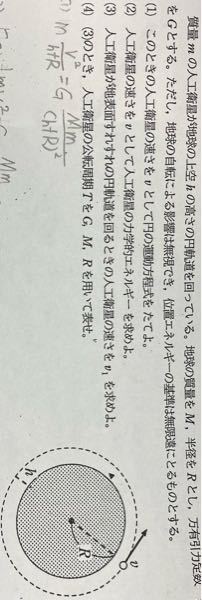 質量 m の人工衛星が地球の上空 h の高さの円軌道を回っている。地球の質量を M, 半径を R とし, 万有引力定数
を G とする。ただし, 地球の自転による影響は無視でき, 位置エネルギーの基準は無限遠にとるものとする。
(1) このときの人工衛星の速さを v として円の運動方程式をたてよ。
(2) 人工衛星の速さを v として人工衛星の力学的エネルギーを求めよ。
(3) 人工衛星が地表面すれすれの円軌道を回るときの人工衛星の速さ v₁ を求めよ。
(4) (3)のとき, 人工衛星の公転周期 T を G, M, R を用いて表せ。
m v²/(h+R) = G Mm/(h+R)²
Mm
v
R
h